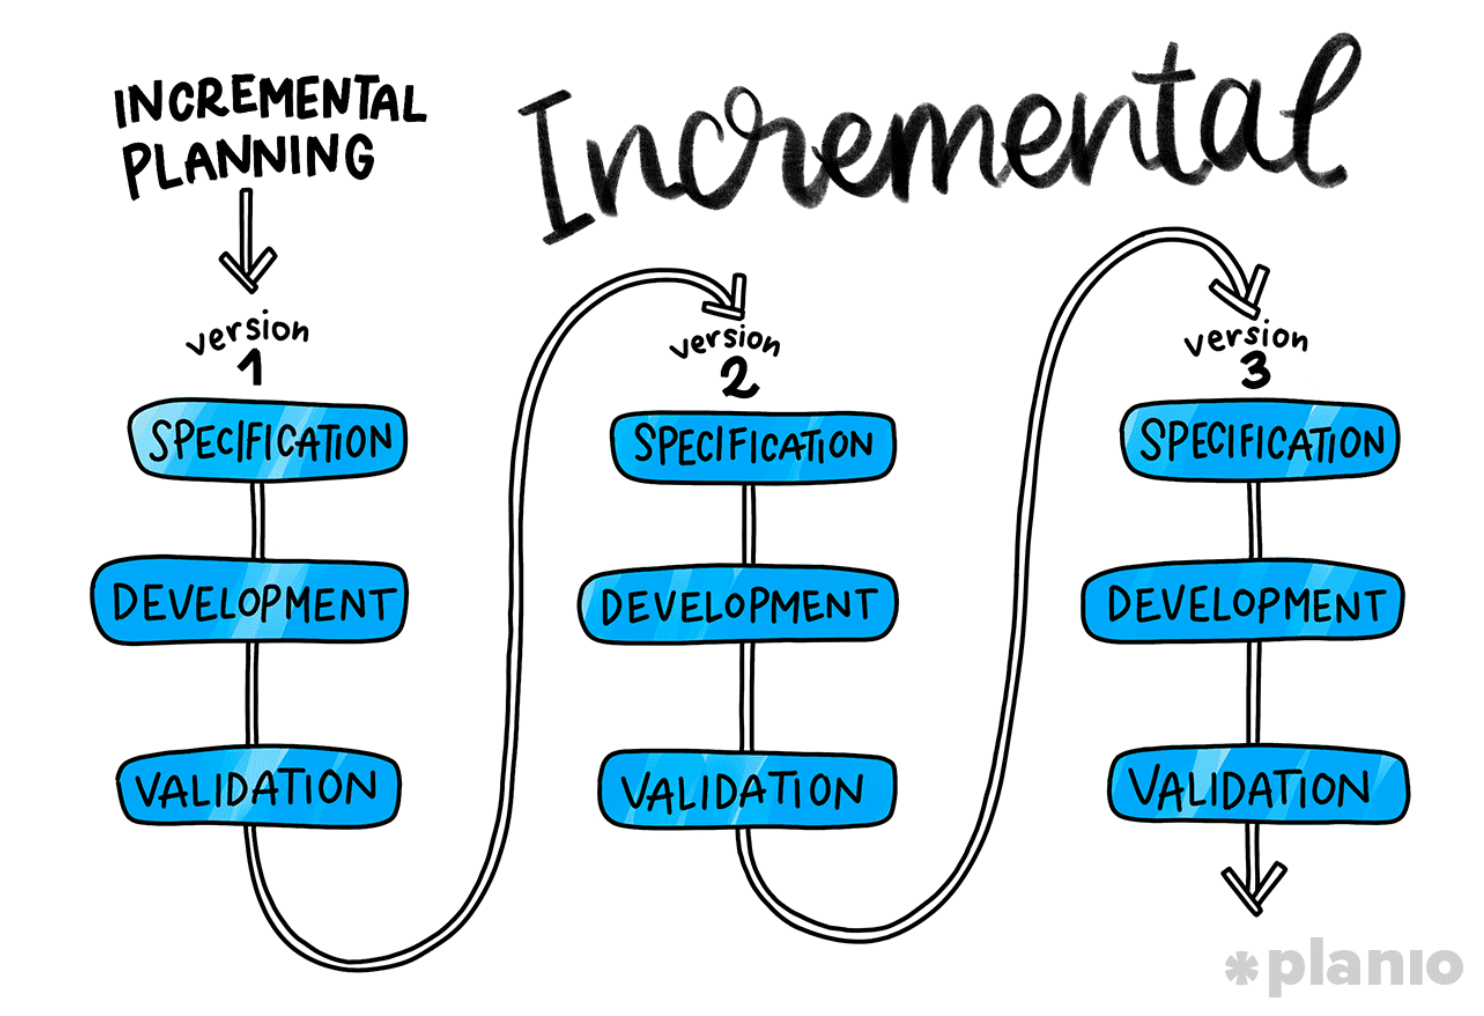 INCREMENTAL
PLANNING
Incremental
version
1
SPECIFICATION
DEVELOPMENT
VALIDATION
version
2
SPECIFICATION
DEVELOPMENT
VALIDATION
version
3
SPECIFICATION
DEVELOPMENT
VALIDATION
*planio